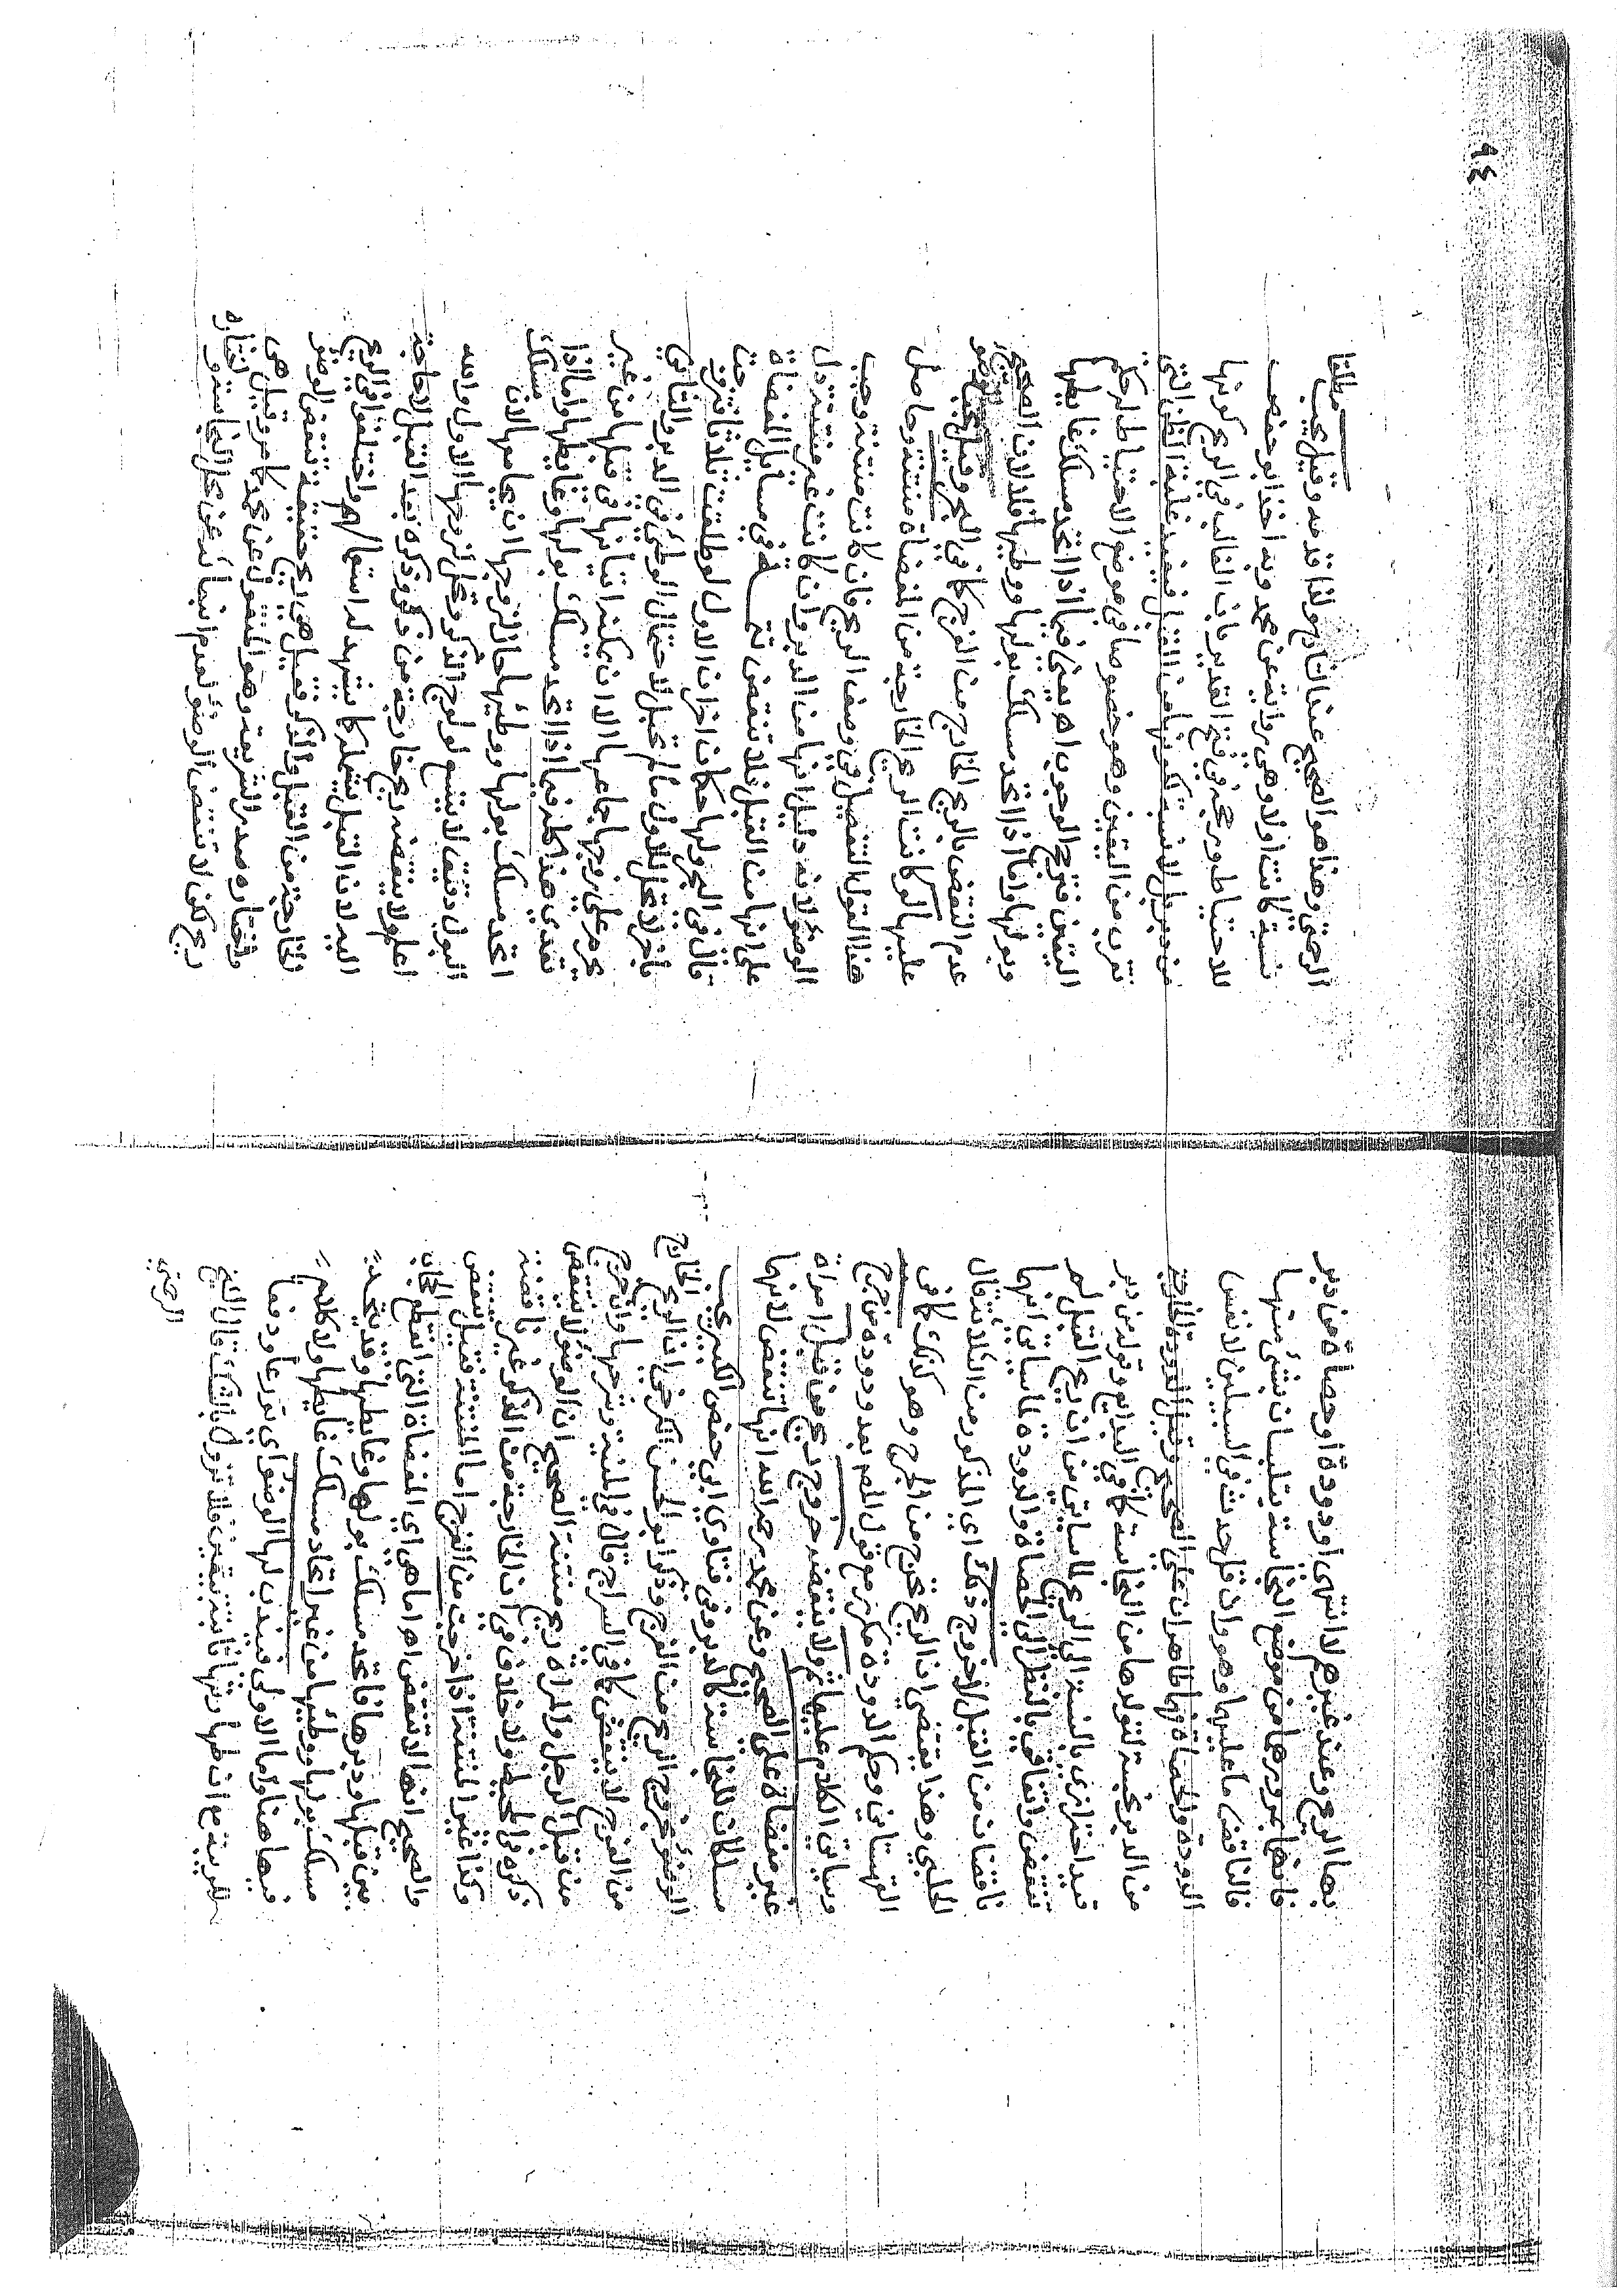 بها الريح وعند غيرهم لا انتهى او دودة او حصاة من دبر
فانها بمرورها من موضع النجاسة يتلبسان بشئ منها
فالناقض ما عليها وهو وان قل حدث في السبيلين لا نفس
الدودة والحصاة فانها طاهران على الصحيح وقيل الدودة الخارجة
من الدبر نجسة لتولدها من النجاسة كما في البدايع وقوله من دبر
قيد احترازي بالنسبة الى الريح لما سياتي من ان ريح القبل لم
تنقض واتفاقي بالنظر الى الحصاة والدودة لما سياتي انهما
ناقضتان من القبل لا خروج ذلك اي المذكور من الثلاثة قال
الحلبي وهذا يقتضي ان الريح تخرج من الجرح وهو كذلك كما في
القهستاني وحكم الدودة مكرر مع قول المص بعد ودودة من جرح
وسياتي الكلام عليها ثم ولا ينقضه خروج ريح من قبل امراة
غير مفضاة على الصحيح وعن محمد رحمه الله انها تنقض لانها
مسلكان للنجاسة كالدبر وفي فتاوي ابي حفص الكبير يجب
الوضوء بخروج الريح من الفرج وذكر ابو الحسن الكرخي ان الريح الخارج
من الفرج لا ينقض كما في السراج قال في المنية وشرحها وان خرج
من قبل الرجل والمراة ريح منتنة الصحيح ان الوضوء لا ينتقض
ذكره في المحيط ولا خلاف في ان الخارجة من الذكر غير ناقضة
وكذا غير المنتنة اذا خرجت من الفرج اما المنتنة فقيل تنقض
والصحيح انها لا تنقض اهـ اما هي اي المفضاة التي انقطع الحجاب
بين قبلها ودبرها فاتحد مسلك بولها وغائطها وقد يتحد
مسلك بولها ووطئها من غير اتحاد مسلك غايطها ولا كلام
فيها هنا واما الاولى فيندب لها الوضوء اي تورعا ودفعا
للريبة مع ان طهارتها ثابتة بيقين فلا تزول بالشك قال الشيخ
الرحمتي
٩٤
الرحمتي وهذا هو الصحيح عندالشارح ولذا قدمه وقيل يجب مطلقا
نتنة كانت اولا وهي رواية عن محمد وبه اخذ ابو حفص
للاحتياط ورجحه في فتح القدير بان الغالب في الريح كونها
من دبر بل لا نسبة لكونها من القبل فيفيد غلبة الظن التي
تقرب من اليقين وهو خصوصا في موضع الاحتياط له حكم
اليقين فترجح الوجوب اهـ يعني فيما اذا اتحد مسلك غايطها
وبولها واما اذا اتحد مسلك بولها ووطئها فلا لان الصحيح
عدم النقض بالريح الخارج من الفرج كما في البحر وقيل يجب الوضو
عليها لو كانت الريح الخارجة من المفضاة منتنة وحاصل
هذا القول التفصيل في وصف الريح فان كانت منتنة وجب
الوضوء لانه دليل انها من الدبر وان كانت غير منتنة دل
على انها من القبل فلا تنقض تتمه في مسايل المفضاة
قال في البحر ولها حكمان اخران الاول لو طلقت ثلاثا وتزوجت
باخر لا تحل للاول ما لم تحبل لاحتمال الوطئ في الدبر والثاني
يحرم على زوجها جماعها الا ان يمكنه اتيانها في قبلها من غير
تعدي هذا كله فيما اذا اتحد مسلك بولها وغايطها واما اذا
اتحد مسلك بولها ووطئها حل لزوجها ان يجامعها لان مسلك
البول دقيق لا يتسع لولوج الذكر وتحل لزوجها الاول والله
اعلم ولا ينقضه ريح خارجة من ذكر وذكره بعد القبل لا حاجة
اليه لان القبل يشمله كما يشهد له استعمالهم واختلفوا في الريح
الخارجة من القبل والذكر فقيل هي ريح حقيقة تنقض الوضو
واختاره صدر الشريعة وهو المنقول عن محمد كما مر وقيل هي
ريح لكن لا تنقض الوضوء لعدم انبعاثه عن محل النجاسة واختاره